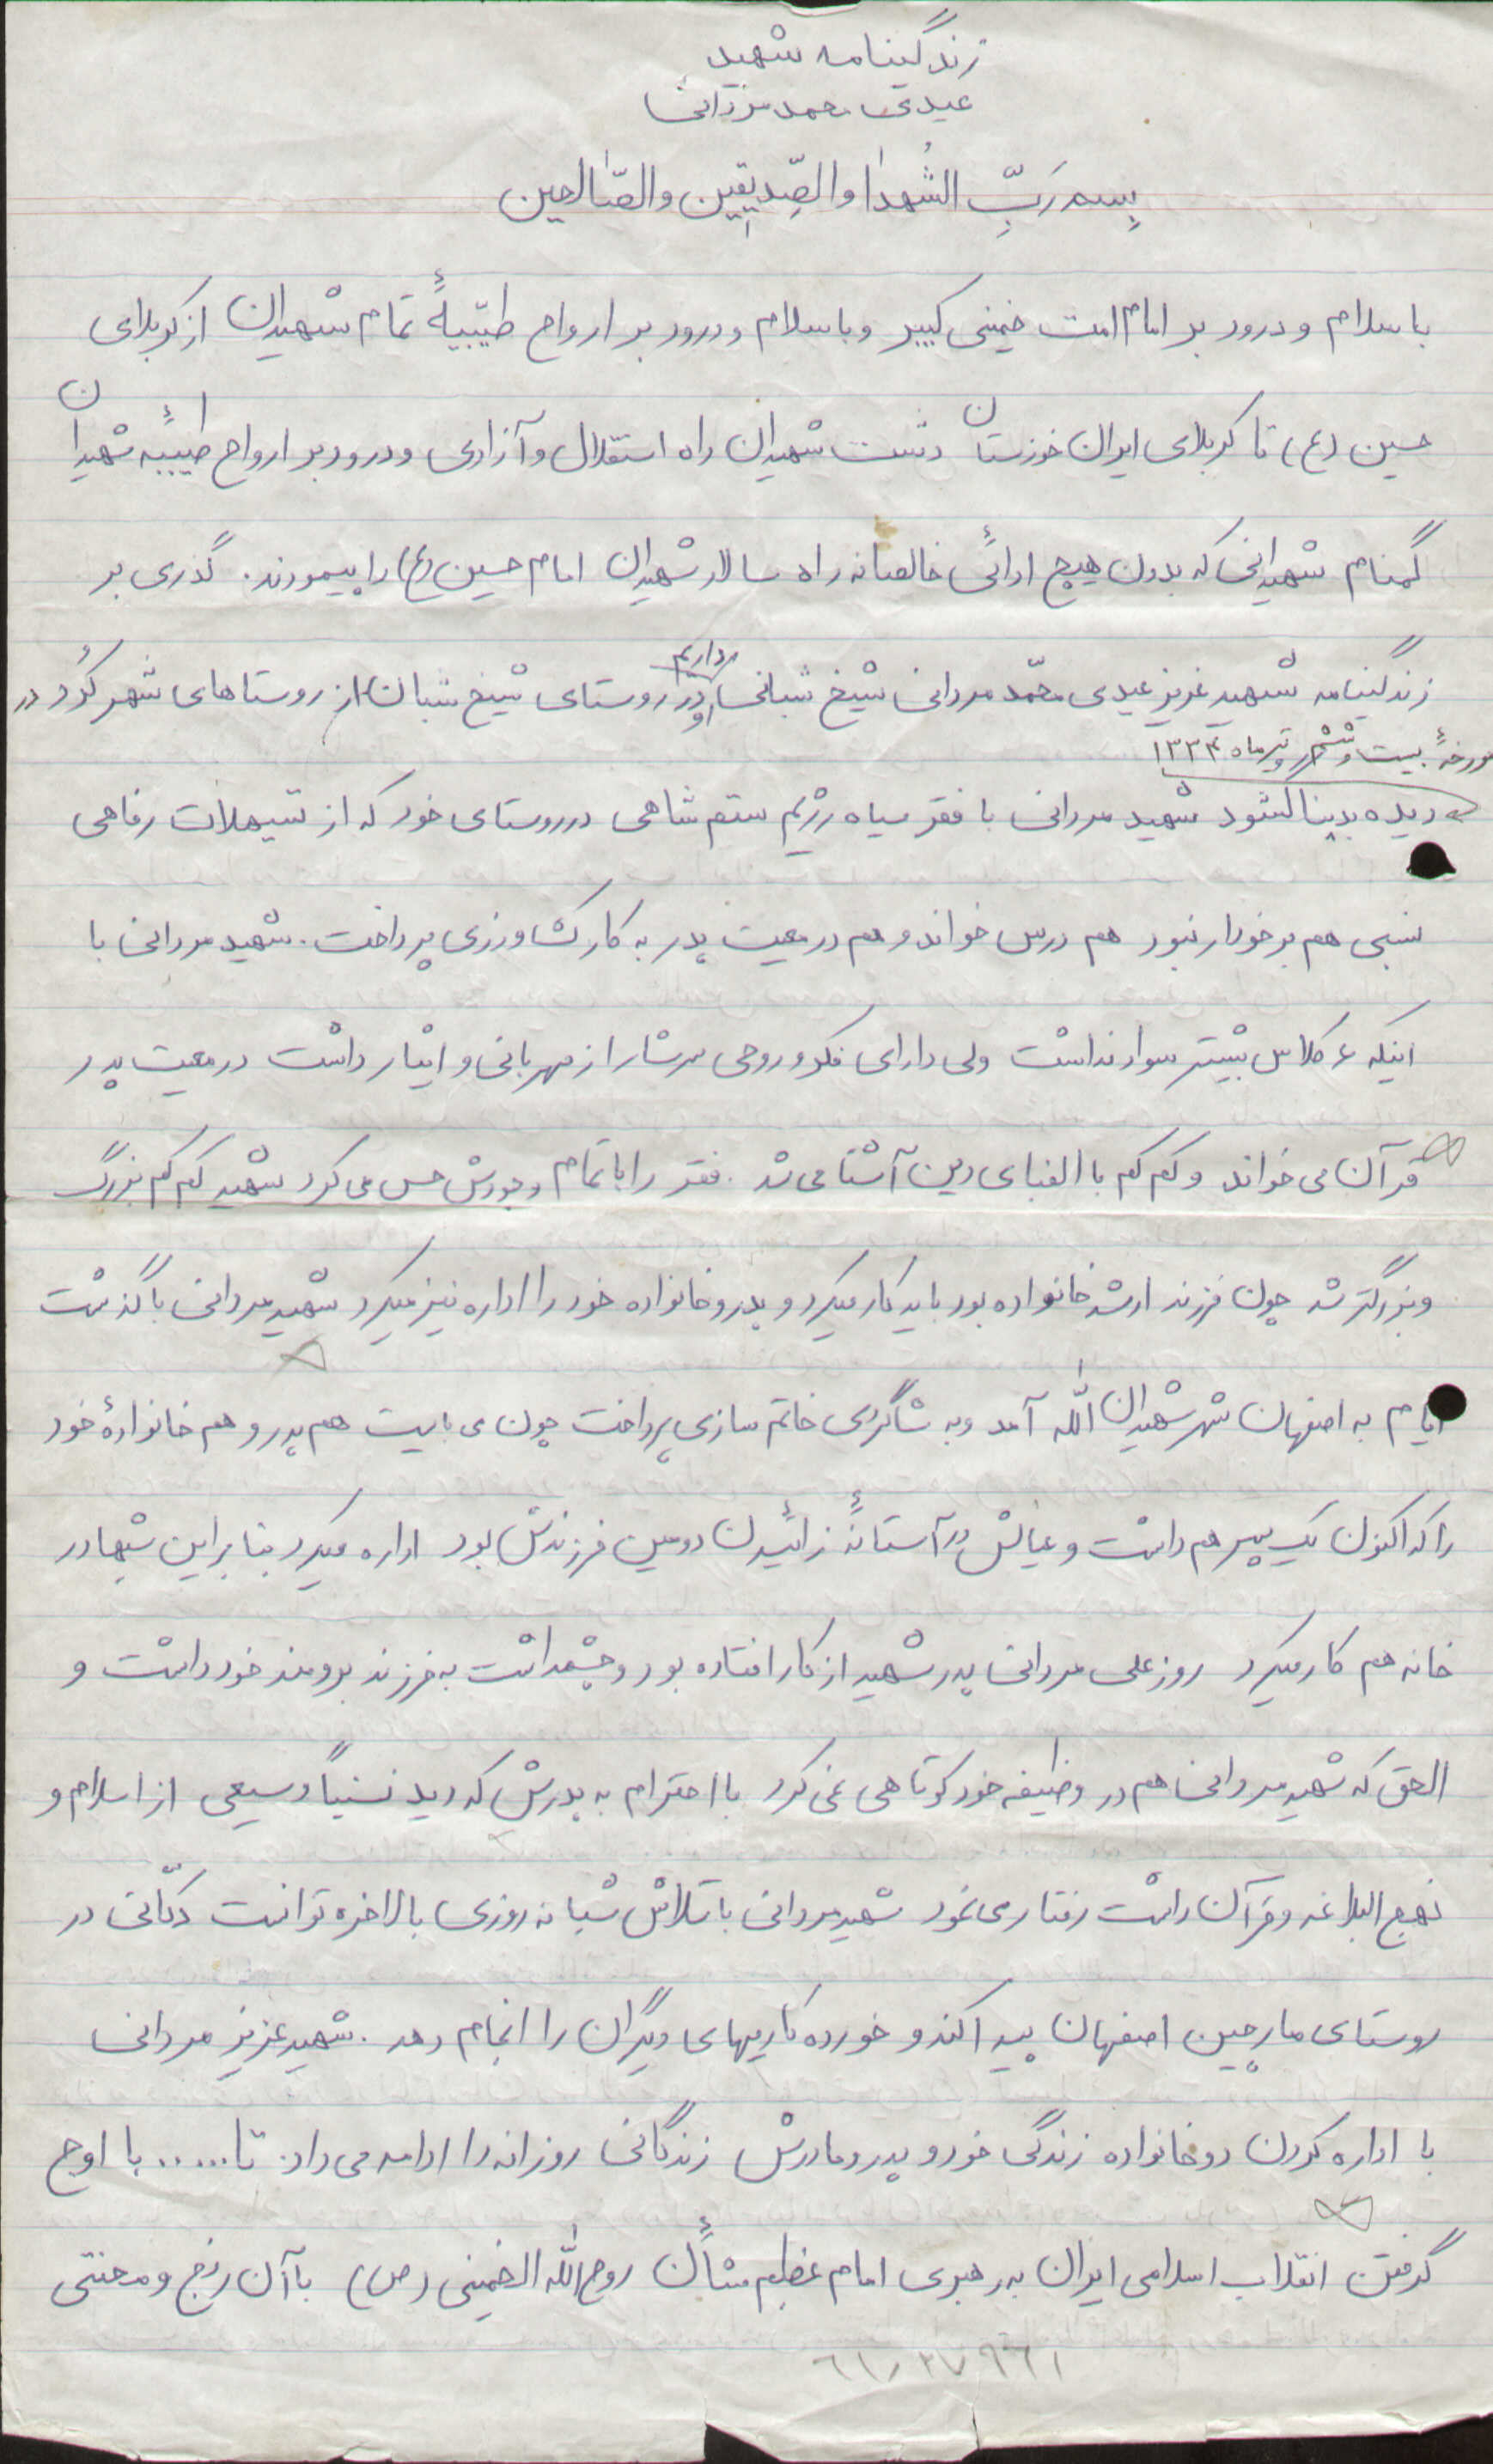 زندگینامه شهید
عیدی محمد مردانی
بِسمِ رَبِّ الشُهدا والصِّدیقین والصّالحین
با سلام و درود بر امام امت خمینی کبیر و با سلام و درود بر ارواح طیّبهٔ تمام شهیدان از کربلای
حسین (ع) تا کربلای ایران خوزستان دشت شهیدان راه استقلال و آزادی و درود بر ارواح طیبّهٔ شهیدان
گمنام شهیدانی که بدون هیچ ادائی خالصانه راه سالار شهیدان امام حسین (ع) را پیمودند. گذری بر
زندگینامه شهید عزیز عیدی محمّد مردانی شیخ شبانی داریم او در روستای شیخ شبان از روستاهای شهر کُرد در
مورخهٔ بیست و ششم تیرماه ۱۳۳۴
دیده بدنیا گشود شهید مردانی با فقر سیاه رژیم ستم شاهی در روستای خود که از تسیهلات رفاهی
نسبی هم برخوردار نبود هم درس خواند و هم در معیت پدر به کار کشاورزی پرداخت. شهید مردانی با
اینکه ۶ کلاس بیشتر سواد نداشت ولی دارای فکر و روحی سرشار از مهربانی و ایثار داشت در معیت پدر
قرآن می خواند و کم کم با الفبای دین آشنا می شد. فقر را با تمام وجودش حس می کرد شهید کم کم بزرگ
و بزرگتر شد چون فرزند ارشد خانواده بود باید کار میکرد و پدر و خانواده خود را اداره نیز میکرد شهید مردانی با گذشت
ایام به اصفهان شهر شهیدان اللّه آمد و به شاگردی خاتم سازی پرداخت چون می بایست هم پدر و هم خانوادهٔ خود
را که اکنون یک پسر هم داشت و عیالش در آستانهٔ زائیدن دومین فرزندش بود اداره میکرد بنابراین شبها در
خانه هم کار میکرد روزعلی مردانی پدر شهید از کار افتاده بود و چشمداشت به فرزند برومند خود داشت و
الحق که شهید مردانی هم در وظیفه خود کوتاهی نمی کرد با احترام به پدرش که دید نسبتاً وسیعی از اسلام و
نهج البلاغه و قرآن داشت رفتار می نمود شهید مردانی با تلاش شبانه روزی بالاخره توانست دکّانی در
روستای مارچین اصفهان پیدا کند و خورده کاریهای دیگران را انجام دهد. شهید عزیز مردانی
با اداره کردن دو خانواده زندگی خود و پدر و مادرش زندگانی روزانه را ادامه می داد. تا..... با اوج
گرفتن انقلاب اسلامی ایران به رهبری امام عظیم شأن روح اللّه الخمینی (ص) با آن رنج و محنتی